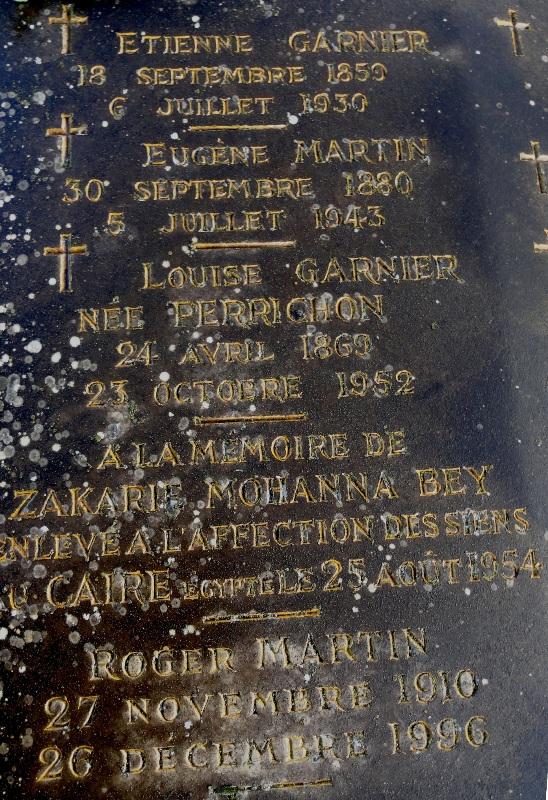 ETIENNE GARNIER
18 SEPTEMBRE 1859
6 JUILLET 1930
EUGÈNE MARTIN
30 SEPTEMBRE 1880
5 JUILLET 1943
LOUISE GARNIER
NÉE PERRICHON
24 AVRIL 1869
23 OCTOBRE 1952
A LA MÉMOIRE DE
ZAKARIE MOHANNA BEY
ENLEVÉ A L'AFFECTION DES SIENS
AU CAIRE EGYPTE LE 25 AOÛT 1954
ROGER MARTIN
27 NOVEMBRE 1910
26 DÉCEMBRE 1996